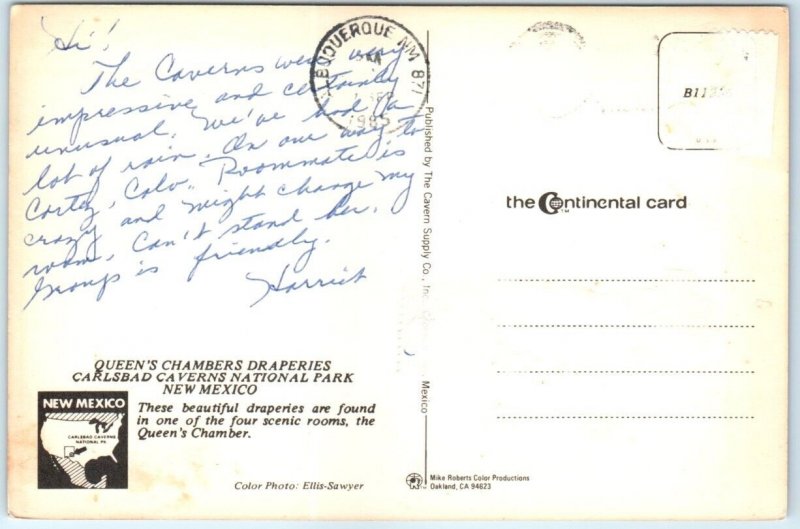 Hi!
The Caverns were very
impressive and certainly
unusual. We've had a
lot of rain. On our way to
Cortez, Colo. Roommate is
crazy and might change my
room. Can't stand her.
Group is friendly.
Harriet
ALBUQUERQUE NM 871
1985
B1127
the Continental card
TM
Published by The Cavern Supply Co., Inc.
Mexico
QUEEN'S CHAMBERS DRAPERIES
CARLSBAD CAVERNS NATIONAL PARK
NEW MEXICO
NEW MEXICO
CARLSBAD CAVERNS
NATIONAL PK.
These beautiful draperies are found
in one of the four scenic rooms, the
Queen's Chamber.
Color Photo: Ellis-Sawyer
Mike Roberts Color Productions
Oakland, CA 94623